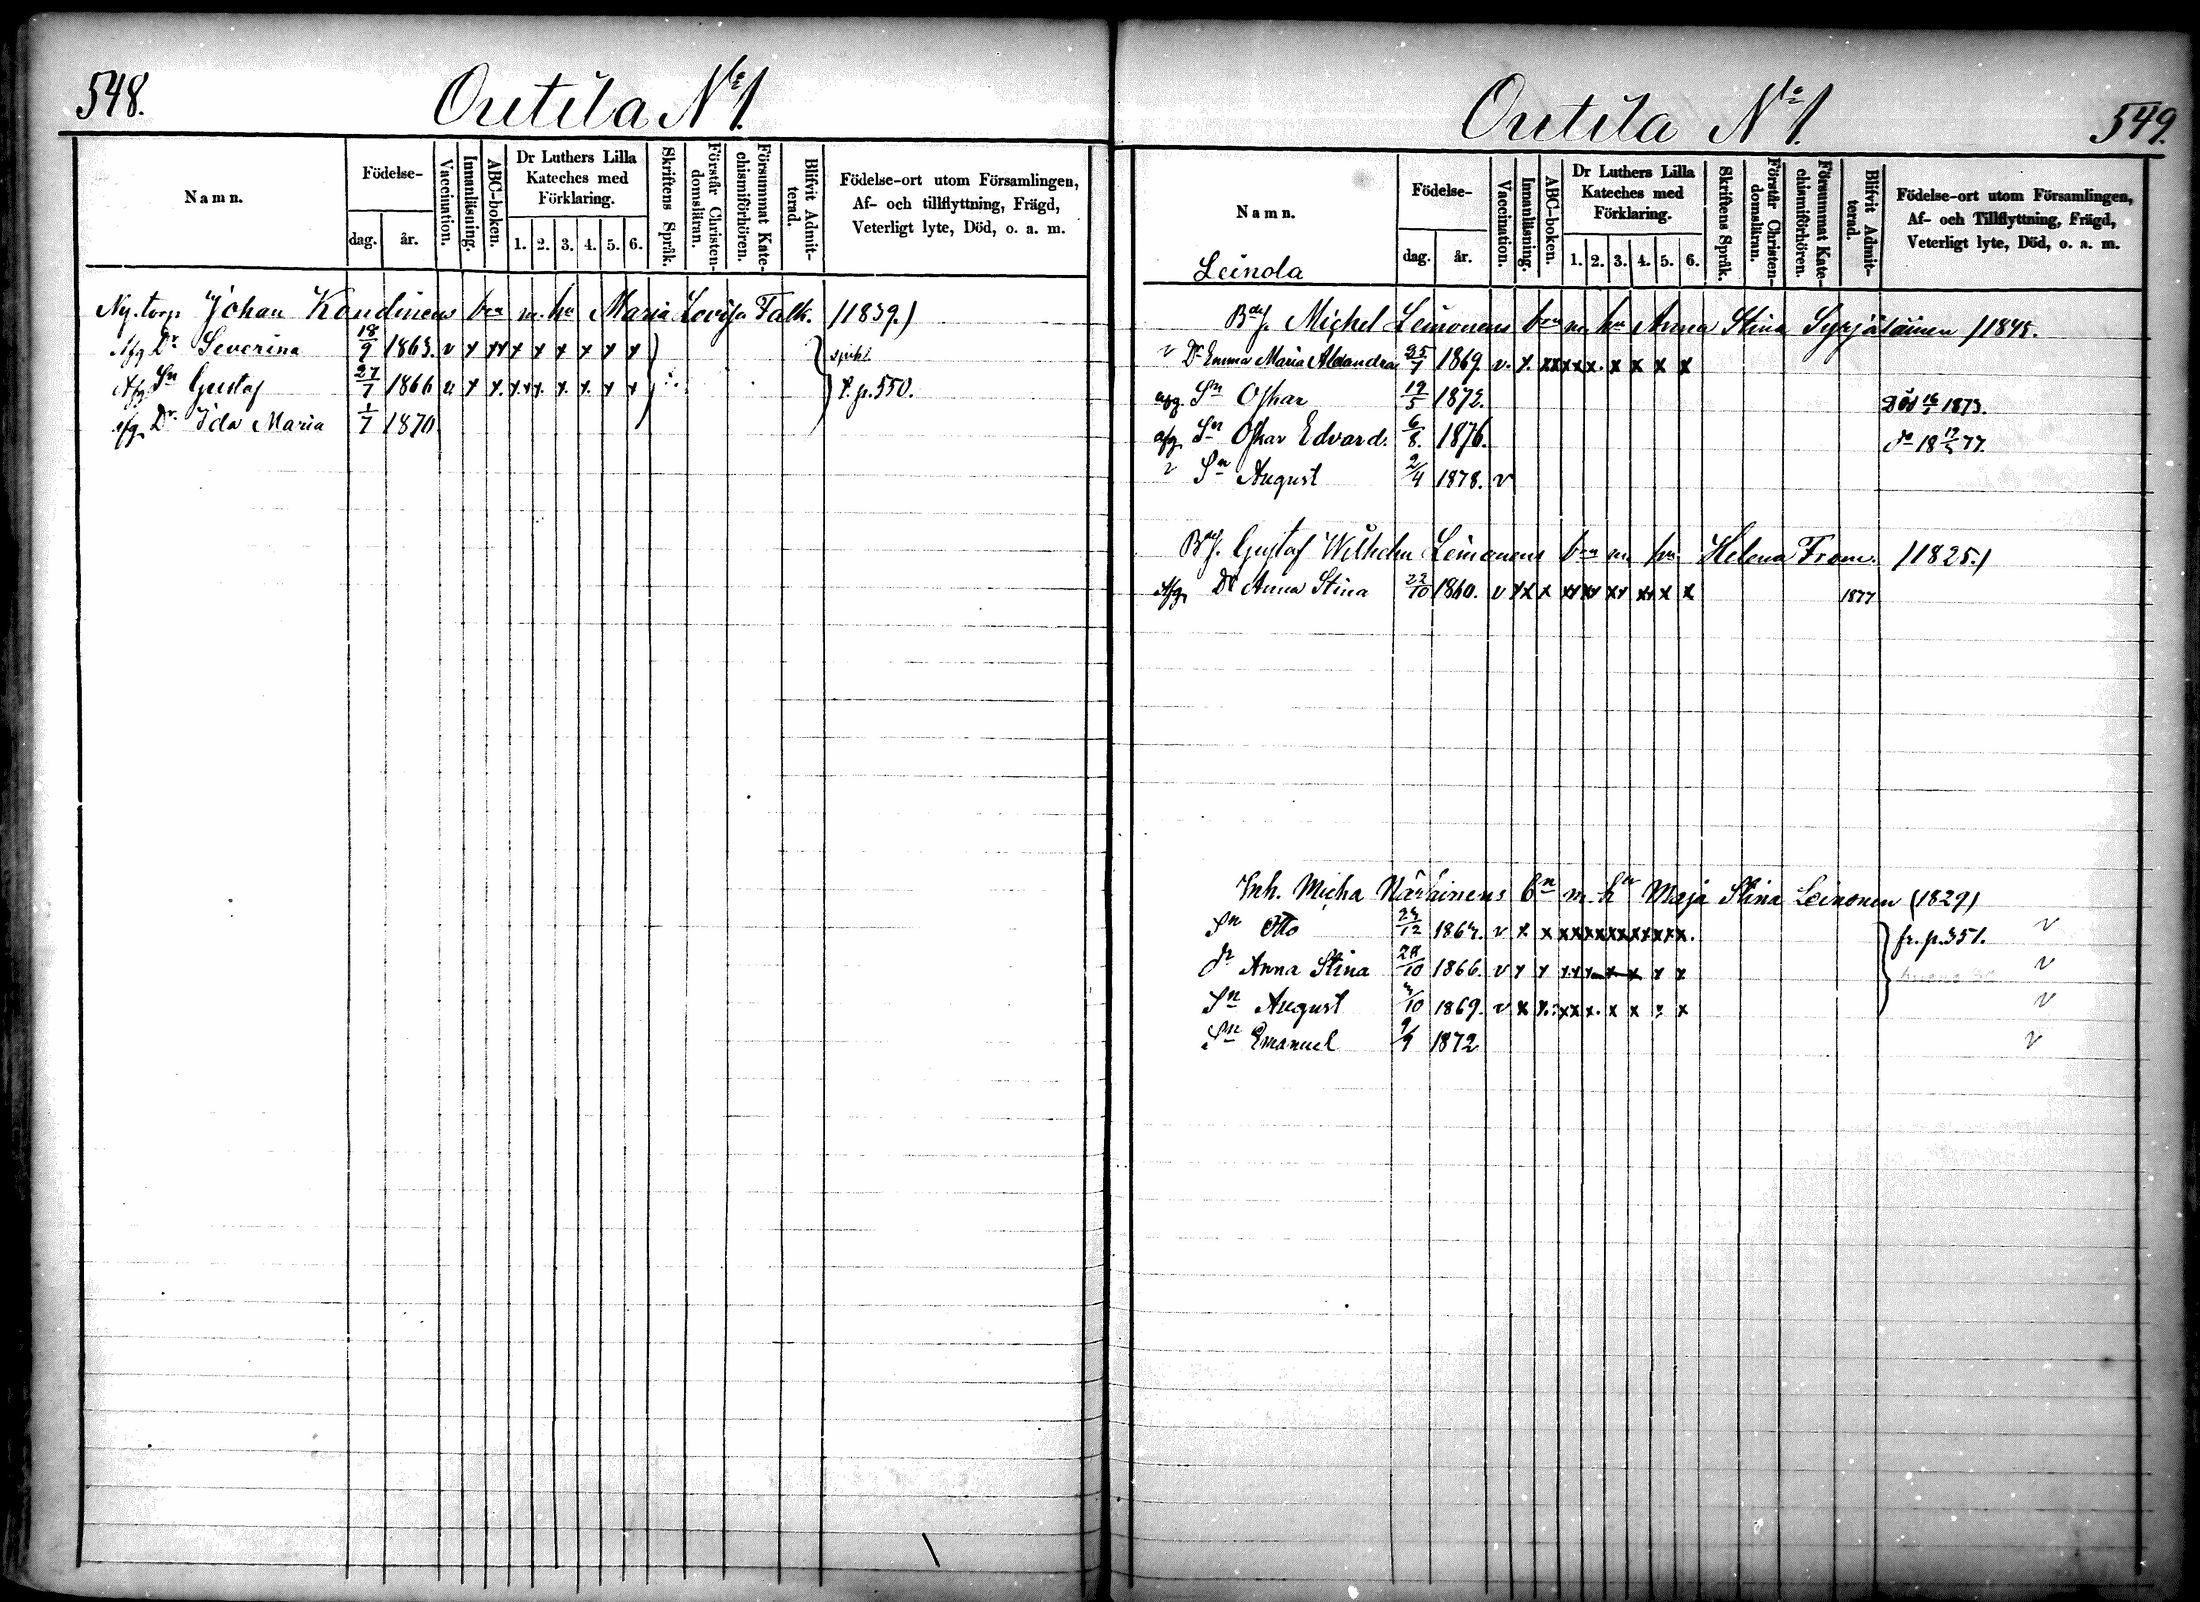 548.
Outila No 1.
Namn.
Födelse-
dag.
år.
Vaccination.
Innanläsning.
ABC-boken.
Dr Luthers Lilla
Kateches med
Förklaring.
1. 2. 3. 4. 5. 6.
Skriftens Språk.
Förstår Christen-
domsläran.
Försummat Kate-
chismiförhören.
Blifvit Admit-
terad.
Födelse-ort utom Församlingen,
Af- och tillflyttning, Frägd,
Veterligt lyte, Död, o. a. m.
Ny.torp. Johan bn m. ha Maria Lovisa Falk. (1839.)
Afg Dr Severina 18/9 1863. v x xx x x x x x x
Afg Sn Gustaf 27/7 1866 v x x. x. xx. x. x. x x p. 550.
Afg Dr Ida Maria 1/7 1870
549.
Outila No 1.
Namn.
Leinola
Födelse-
dag.
år.
Vaccination.
Innanläsning.
ABC-boken.
Dr Luthers Lilla
Kateches med
Förklaring.
1. 2. 3. 4. 5. 6.
Skriftens Språk.
Förstår Christen-
domsläran.
Försummat Kate-
chismiförhören.
Blifvit Admit-
terad.
Födelse-ort utom Församlingen,
Af- och Tillflyttning, Frägd,
Veterligt lyte, Död, o. a. m.
Michel Leinonens bn m ha Anna Stina Syrjäläinen (1845.
v Dr Emma Maria Alexandra 25/1 1869. v. x. xx xx x. x x x x
afg. Sn Oskar 19/5 1872. Död 1873.
afg Sn Oskar Edvard. 6/8. 1876. do 18 77.
v Sn August 2/4 1878. v
Gustaf Wilhelm Leinonens bn m ha Helena From. (1825.)
Afg Dr Anna Stina 22/10 1860. v xx x xx xx xx xx x x 1877
Inh. Micha bn m. ha Maja Stina Leinonen (1829)
Sn Otto v x x xx xx xx xx xx x. fr. p. 351. v
Dr Anna Stina 28/10 1866. v x x x x x x x x x v
Sn August 1869. v x x. xx x. x x x v
Sn Emanuel 9/9 1872 v